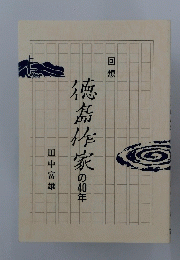 回想
徳島作家の40年
田中富雄